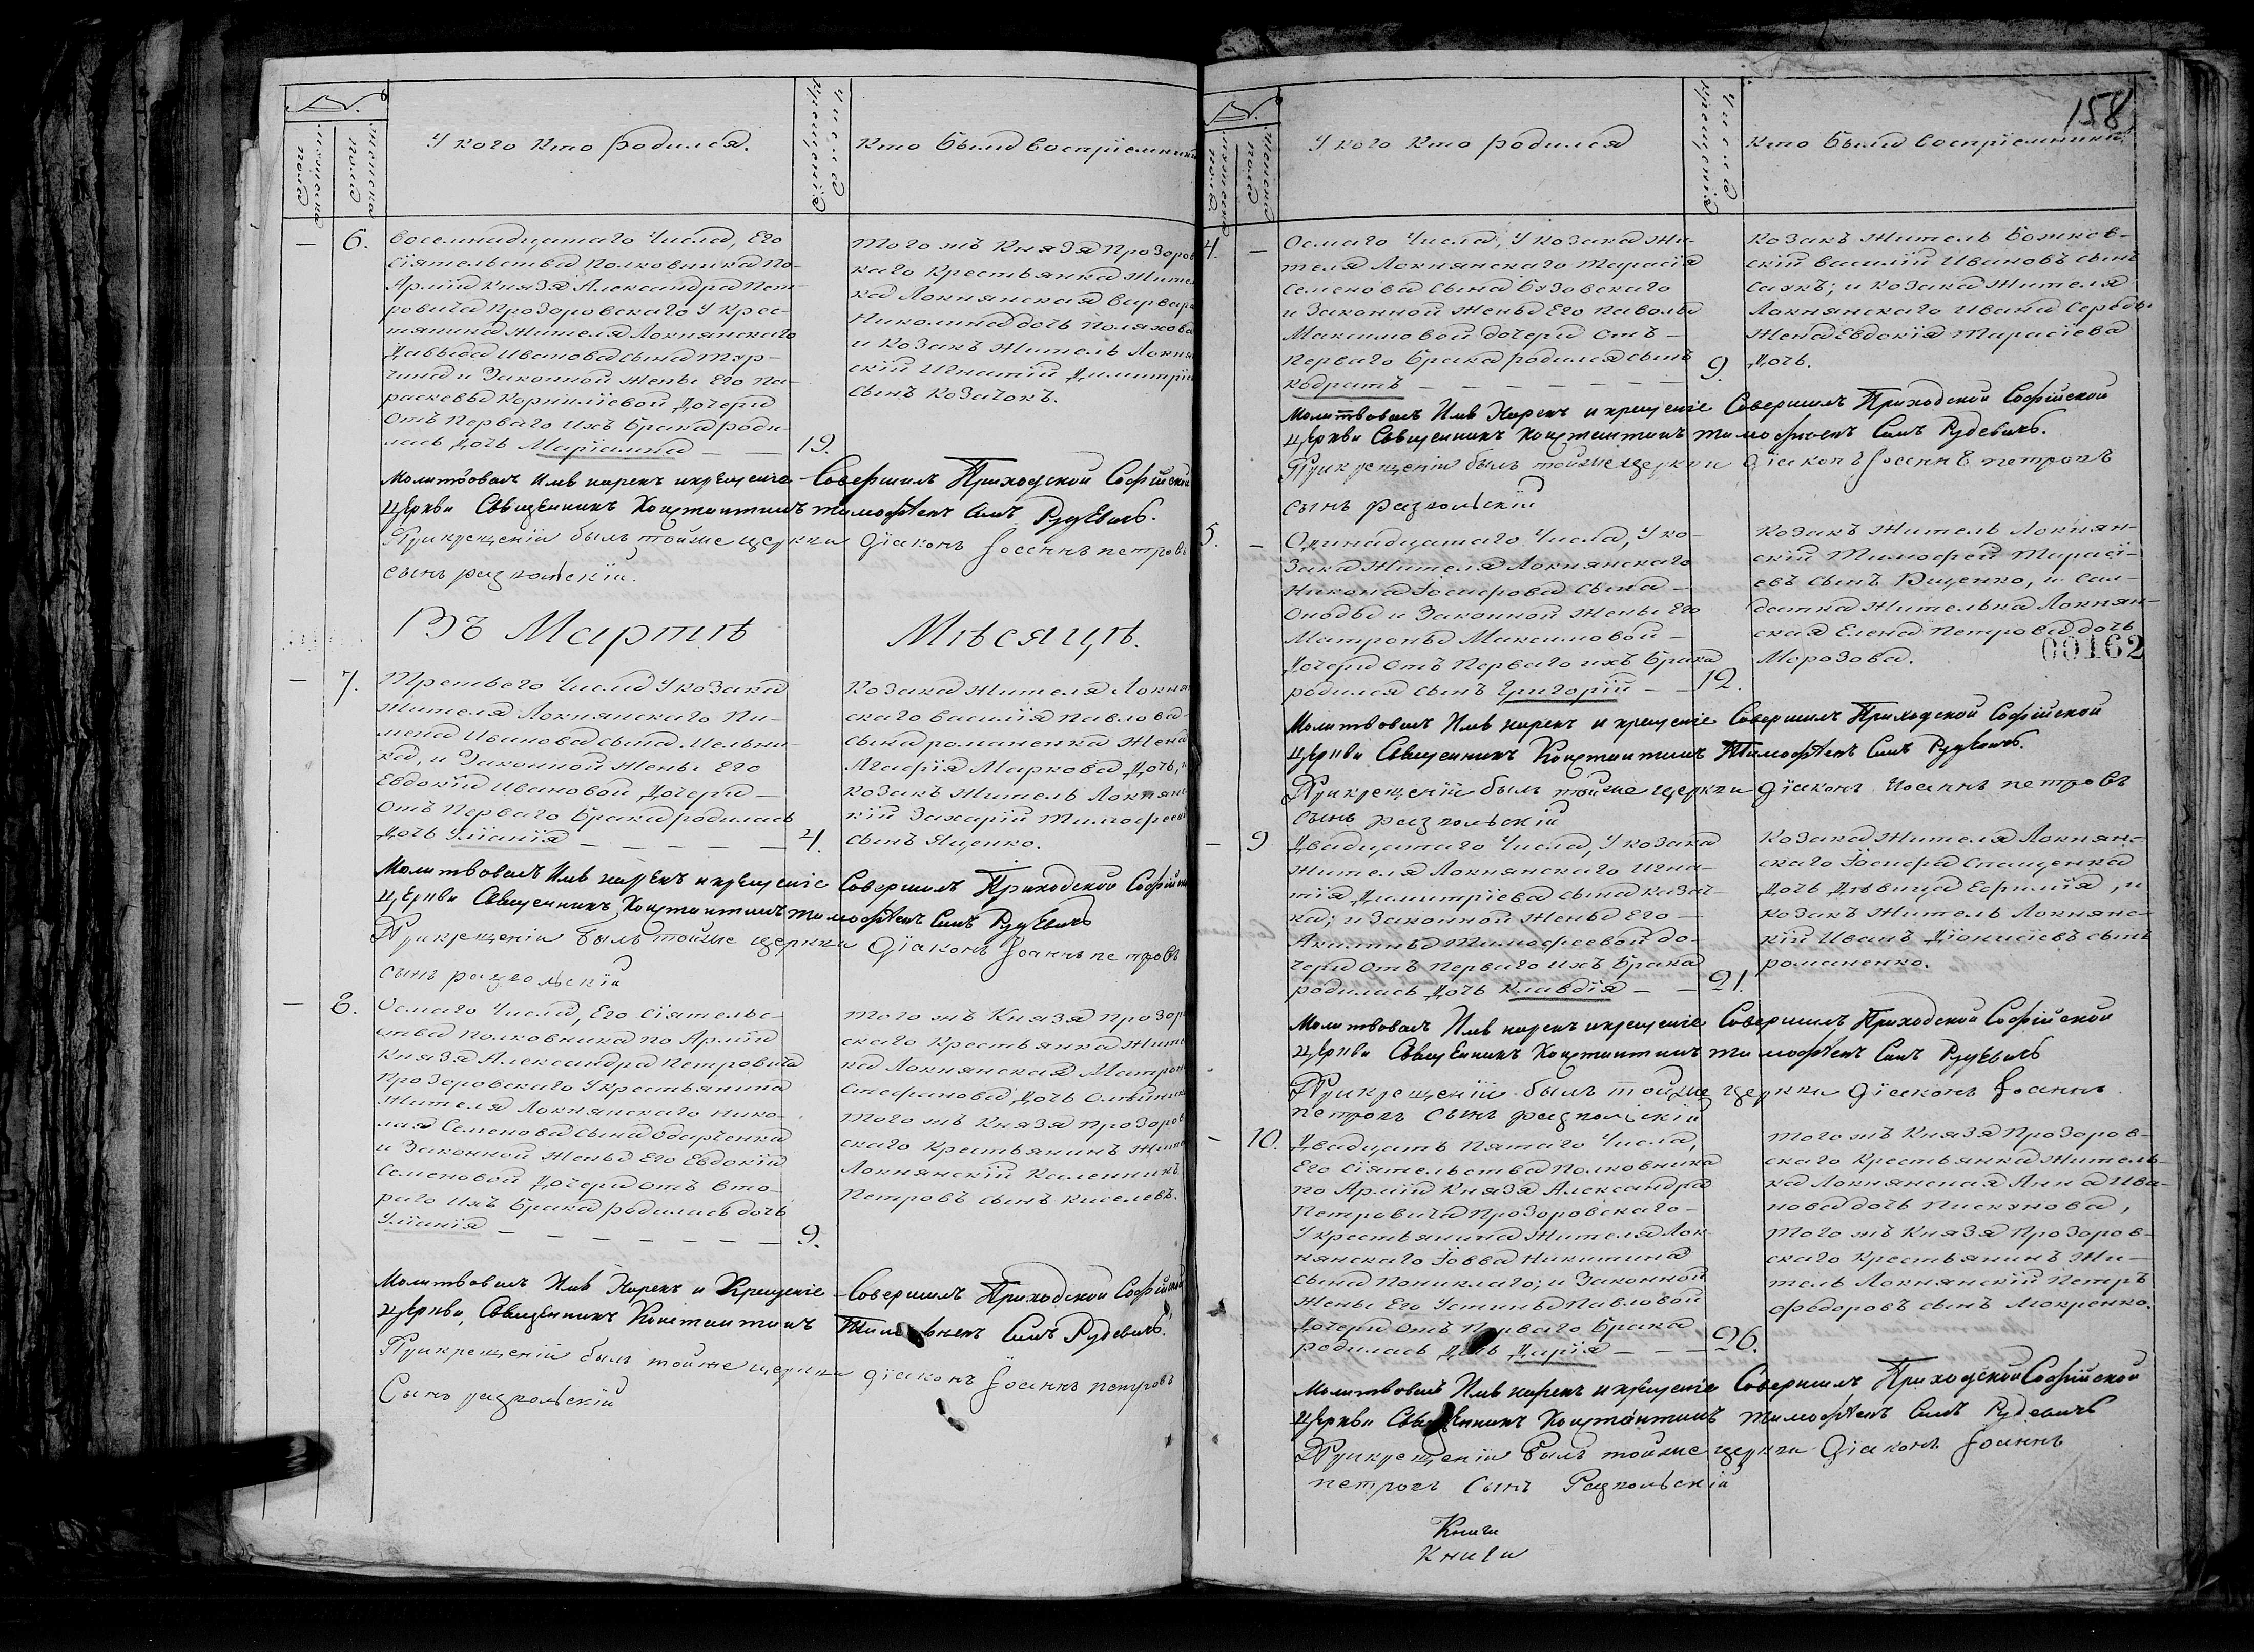 №
мужеска пола
женска пола
У кого кто родился.
Числа крещенія
Кто были воспріемники
6.
восемнадцатаго Числа, Его
Сіятельства Полковника По
Арміи Князя Александра Пет-
ровича Прозоровскаго У Крес-
тянина Жителя Локнянскаго
Давыда Иванова сына Тур-
чина и Законной жены Его Па-
раскевы Корниліевой Дочери
Отъ Перваго Ихъ Брака роди-
лась дочь Маріамна
19.
Того жъ Князя Прозоров
каго Крестьянка Жител
ка Локнянская Варвара
Николина дочь Поляхова
и Козакъ Житель Локнян
скій Игнатій Димитріи
сынъ Козачокъ.
Молитвовалъ Имѣ нарекъ и крещеніе Совершилъ Приходской Софійской
Церкви Священникъ Константинъ Тимофѣевъ Сынъ Рудевичъ.
При крещеніи былъ тойже церкви діаконъ Іоаннъ петровъ
сынъ разпольскій.
Въ Мартѣ Мѣсяцѣ.
7.
Третьего Числа У козака
Жителя Локнянскаго Пи-
мена Иванова сына Мельни-
ка, и Законной жены Его
Евдокіи Ивановой Дочери
Отъ Перваго Брака родилась
дочь Уліанія
4.
Козака жителя Локня
скаго Василія Павлова
сына романенка жена
Агафія Маркова Дочь, и
козакъ житель Локнянс
кій Захарій Тимофеев
сынъ Яценко.
Молитвовалъ Имѣ нарекъ и крещеніе Совершилъ Приходской Софійск
Церкви Священникъ Константинъ Тимофѣевъ Сынъ Рудевичъ
При крещеніи былъ тойже церкви діаконъ Іоаннъ петровъ
сынъ разпольскій
8.
Осмаго Числа, Его Сіятельс-
тва Полковника по Арміи
Князя Александра Петровича
Прозоровскаго У крестьянина
Жителя Локнянскаго Нико-
лая Семенова сына Одарченка
и Законной жены Его Евдокіи
Семеновой Дочери отъ вто-
раго Ихъ Брака родилась дочь
Уліанія
9.
Того жъ Князя Прозор
скаго Крестьянка Жите
ка Локнянская Матрон
Стефанова Дочь Олейник
Того жъ Князя Прозоров
скаго Крестьянинъ Жит
Локнянскій Каленникъ
Петровъ сынъ Киселевъ.
Молитвовалъ Имѣ Нарекъ и Крещеніе Совершилъ Приходской Софійской
Церкви, Священникъ Константинъ Тимофѣевъ Сынъ Рудевичъ.
При крещеніи былъ тойже церкви діаконъ Іоаннъ петровъ
Сынъ разпольскій
158
№
мужеска пола
женска пола
У кого кто родился
Числа крещенія
Кто были воспріемники
4.
Осмаго Числа, У козака жи-
теля Локнянскаго Тарасія
Семенова сына Бузовскаго
и Законной жены Его Паволы
Максимовой дочери Отъ
Перваго Брака родился сынъ
Кодратъ
9.
Козакъ житель Божков-
скій Василій Ивановъ сынъ
Саякъ; и козака жителя
Локнянскаго Ивана Середы
жена Евдокія Тарасіева
Дочь.
Молитвовалъ Имѣ Нарекъ и крещеніе Совершилъ Приходской Софійской
Церкви Священникъ Константинъ Тимофѣевъ Сынъ Рудевичъ.
При крещеніи былъ тойже церкви діаконъ Іоаннъ петровъ
сынъ разпольскій
5.
Одинадцатаго Числа, У ко-
зака жителя Локнянскаго
Никона Іосифова сына
Оноды и Законной жены Его
Матроны Максимовой
Дочери Отъ Перваго ихъ Брака
родился сынъ Григорій
12.
Козакъ житель Локнян-
скій Тимофей Тарасі-
евъ сынъ Ященко, и Сал-
датка жителька Локнян-
ская Елена Петрова дочь
Морозова.
00162
Молитвовалъ Имѣ нарекъ и крещеніе Совершилъ Приходской Софійской
Церкви Священникъ Константинъ Тимофѣевъ Сынъ Рудевичъ.
При крещеніи былъ тойже церкви діаконъ Иоаннъ петровъ
сынъ разпольскій
9
Двадцатаго Числа, У козака
жителя Локнянскаго Игна-
тія Димитріева сына казач-
ка; и Законной жены Его
Акилины Тимофеевой до-
чери отъ Перваго ихъ Брака
родилась Дочь Клавдія
21.
Козака жителя Локнян-
скаго Іосифа Спащенка
дочь Дѣвица Ефимія, и
козакъ житель Локнянс-
кій Иванъ Діонисіевъ сынъ
романенко.
Молитвовалъ Имѣ нарекъ и крещеніе Совершилъ Приходской Софійской
Церкви Священникъ Константинъ Тимофѣевъ Сынъ Рудевичъ
При крещеніи былъ тойже церкви діаконъ Іоаннъ
петровъ сынъ разпольскій
10.
Двадцать Пятаго Числа,
Его Сіятельства Полковника
по Арміи Князя Александра
Петровича Прозоровскаго
У крестьянина Жителя Лок-
нянскаго Іовва Никитина
сына Пониклаго; и Законной
Жены Его Устины Павловой
Дочери отъ Перваго Брака
родилась Дочь Дарія
26.
Того жъ Князя Прозоров-
скаго Крестьянка Житель-
ка Локнянская Анна Ива-
нова дочь Пискунова,
Того жъ Князя Прозоров-
скаго Крестьянинъ Жи-
тель Локнянскій Петръ
Федоровъ сынъ Мокренко.
Молитвовалъ Имѣ нарекъ и крещеніе Совершилъ Приходской Софійской
Церкви Священникъ Константинъ Тимофѣевъ Сынъ Рудевичъ
При крещеніи былъ тойже церкви діаконъ Іоаннъ
петровъ Сынъ Разпольскій
Книги
Книги